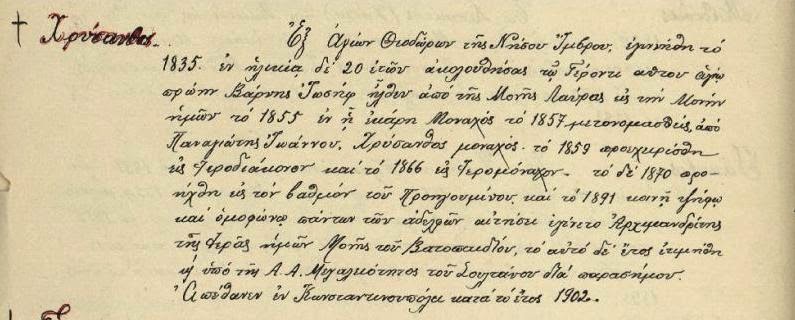 † Χρύσανθος. Ἐξ Ἁγίων Θεοδώρων τῆς Νήσου Ἴμβρου, ἐγεννήθη τὸ
1835. ἐν ἡλικίᾳ δὲ 20 ἐτῶν ἀκολουθήσας τῷ Γέροντι αὐτοῦ ἁγίῳ
πρώην Βάρνης Ἰωσὴφ ἦλθεν ἀπὸ τῆς Μονῆς Λαύρας εἰς τὴν Μονὴν
ἡμῶν τὸ 1855 ἐν ᾗ ἐκάρη Μοναχὸς τὸ 1857 μετονομασθεὶς, ἀπὸ
Παναγιώτης Ἰωάννου, Χρύσανθος μοναχός. τὸ 1859 προεχειρίσθη
εἰς Ἱεροδιάκονον καὶ τὸ 1866 εἰς Ἱερομόναχον. τὸ δὲ 1870 προ-
ήχθη εἰς τὸν βαθμὸν τοῦ Προηγουμένου, καὶ τὸ 1891 κοινῇ ψήφῳ
καὶ ὁμοφώνῳ πάντων τῶν ἀδελφῶν αἰτήσει ἐγένετο Ἀρχιμανδρίτης
τῆς Ἱερᾶς ἡμῶν Μονῆς τοῦ Βατοπαιδίου, τὸ αὐτὸ δὲ ἔτος ἐτιμήθη
ὑπὸ τῆς Α. Α. Μεγαλειότητος τοῦ Σουλτάνου διὰ παρασήμου.
Ἀπέθανεν ἐν Κωνσταντινουπόλει κατὰ τὸ ἔτος 1902.